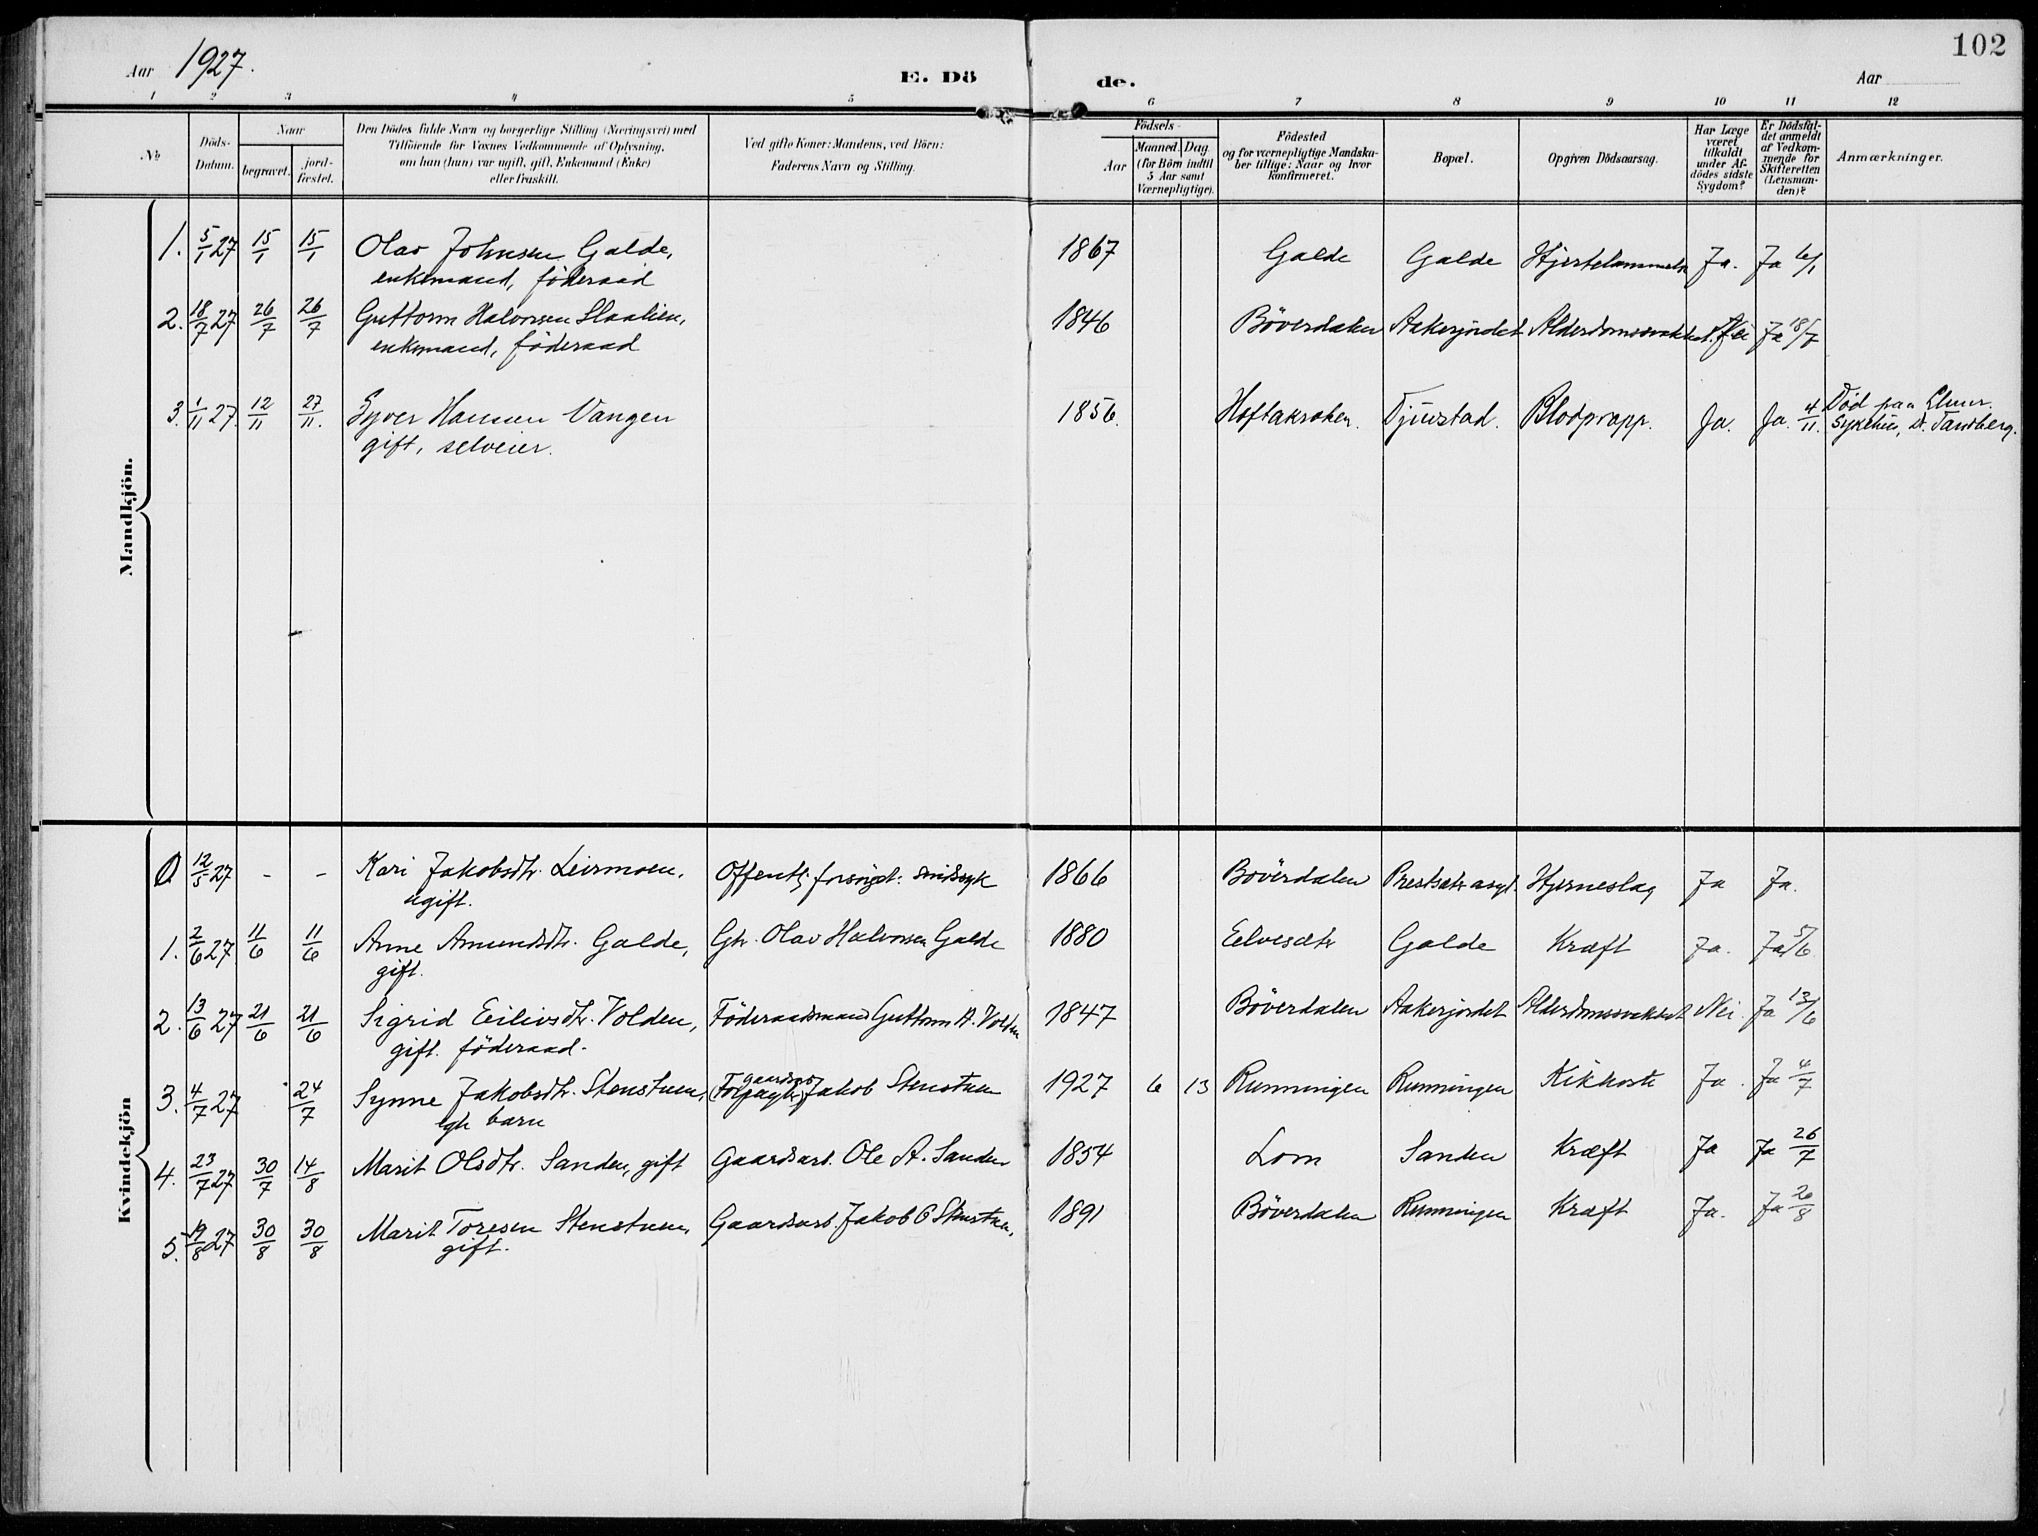 102
Aar 1927.
E. Dö de.
Aar
1 2 3 4 5 6 7 8 9 10 11 12
No
Döds-
Datum.
Naar
begravet.
jord-
fæstet.
Den Dödes fulde Navn og borgerlige Stilling (Næringsvei) med
Tilföiende for Voxnes Vedkommende af Oplysning,
om han (hun) var ugift, gift, Enkemand (Enke)
eller fraskilt.
Ved gifte Koner: Mandens, ved Börn:
Faderens Navn og Stilling.
Födsels-
Aar
Maaned. Dag
(for Börn indtil
5 Aar samt
Værnepligtige).
Födested
og for værnepligtige Mandska-
ber tillige: Naar og hvor
konfirmeret.
Bopæl.
Opgiven Dödsaarsag.
Har Læge
været
tilkaldt
under Af-
dödes sidste
Sygdom?
Er Dödsfal-
det anmeldt
af Vedkom-
mende for
Skifteretten
(Lensman-
den)?
Anmærkninger.
Mandkjön.
1. 5/1 27 15/1 15/1 Olav Johnsen Galde, 1867 Galde Galde Ja. Ja 6/1
enkemand, föderaad
2. 18/7 27 26/7 26/7 Guttorm Halvorsen Slaalien, 1846 Böverdalen Aakerjordet Alderdomssvakhet. Nei Ja 18/7
enkemand, föderaad
3. 1/11 27. 12/11 27/11. Syver Hansen Vangen 1856. Hoftakroken. Blodpropp. Ja. Ja. 4/11. Död paa
gift, selveier. Sykehus, D. Tandberg.
Kvindekjön
0 12/5 27 - - Kari Jakobsdtr. Leirmoen, Offentl. forsörget: sindssyk 1866 Böverdalen Hjerneslag Ja Ja.
ugift.
1. 2/6 27 11/6 11/6 Anne Amundsdtr. Galde, Gbr. Olav Halvorsen Galde 1880 Galde Kræft Ja. Ja 5/6
gift.
2. 13/6 27 21/6 21/6 Sigrid Eilivsdtr. Volden, Föderaadsmand Guttorm H. Volden 1847 Böverdalen Aakerjordet Alderdomssvakhet Nei. Ja 13/6
gift. föderaad.
3. 4/7 27 24/7 Synne Jakobsdtr. Stenstuen, Jakob Stenstuen 1927 6 13 Runningen Runningen Kikhoste Ja. Ja 4/7
egte barn
4. 23/7 27 30/7 14/8 Marit Olsdtr. Sanden, gift Gaardsarb. Ole A. Sanden 1854 Lom Sanden Kræft Ja Ja 26/7
5. 19/8 27 30/8 30/8 Marit Toresen Stenstuen, Gaardsarb. Jakob O Stenstuen, 1891 Böverdalen Runningen Kræft Ja. Ja 26/8
gift.